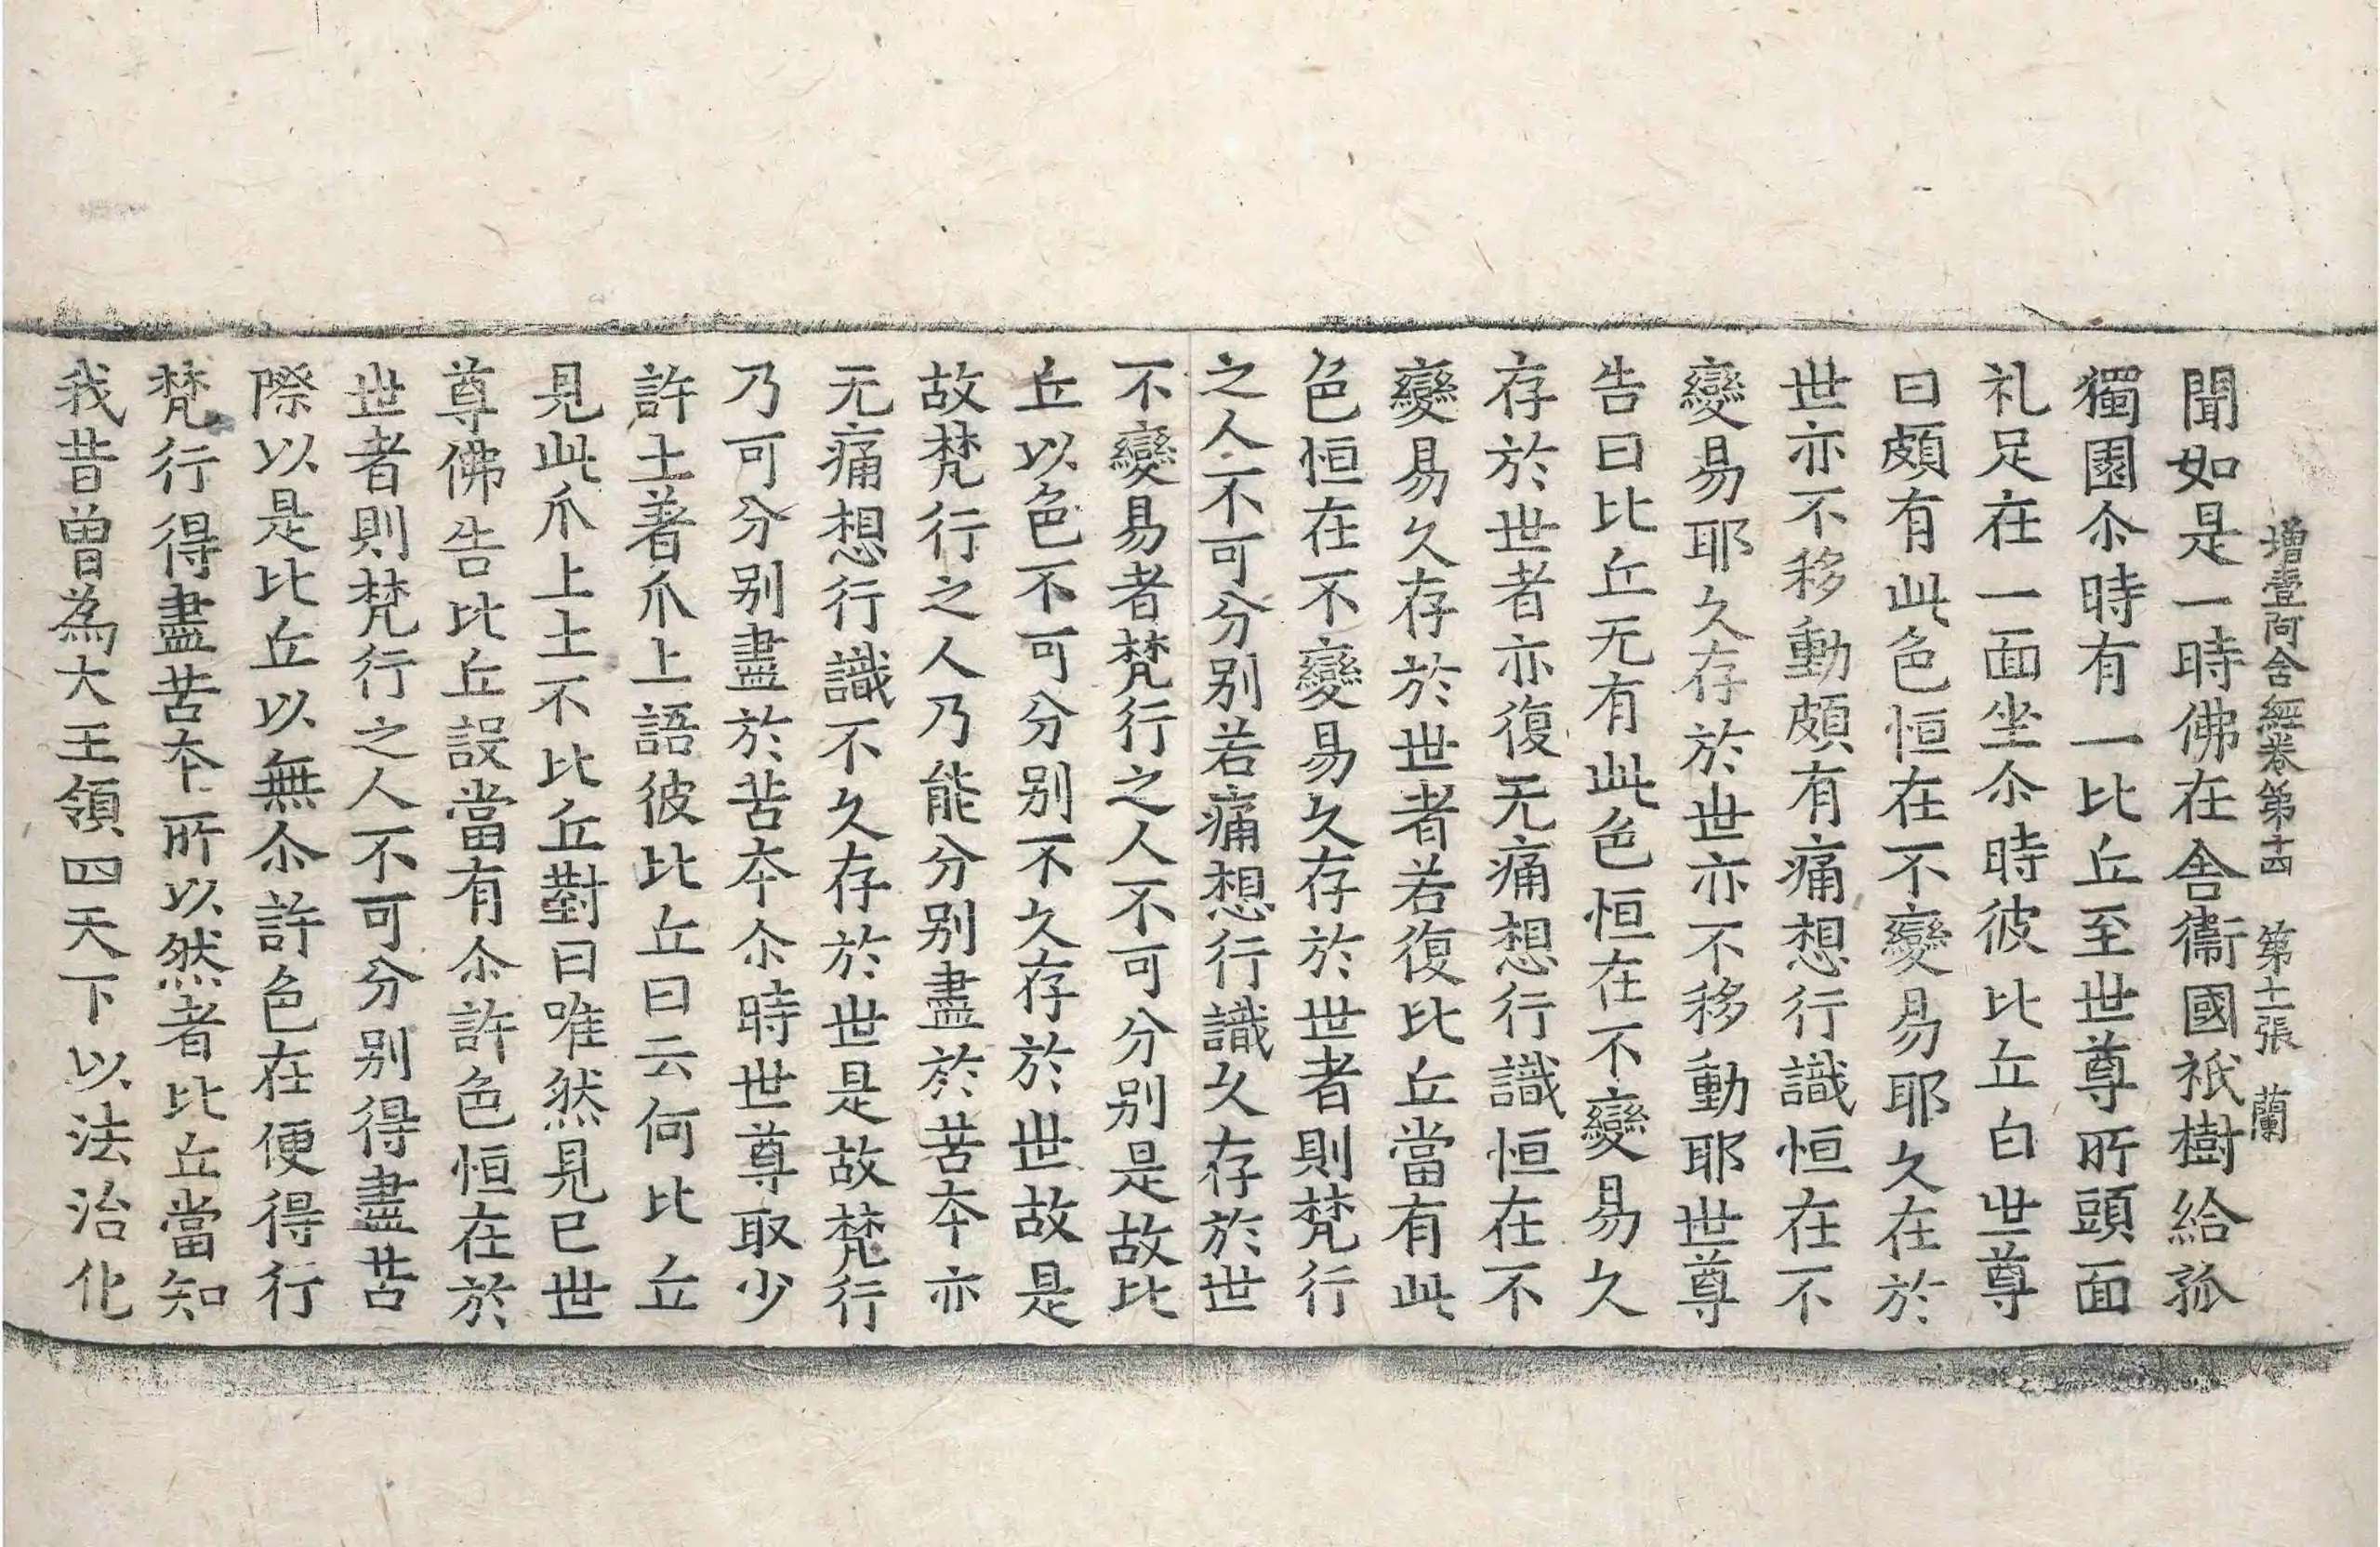 增壹阿含經卷第十四　第十一張　蘭
聞如是一時佛在舍衞國祇樹給孤
獨園尒時有一比丘至世尊所頭面
礼足在一面坐尒時彼比丘白世尊
曰頗有此色恒在不變易耶久在於
世亦不移動頗有痛想行識恒在不
變易耶久存於世亦不移動耶世尊
告曰比丘无有此色恒在不變易久
存於世者亦復无痛想行識恒在不
變易久存於世者若復比丘當有此
色恒在不變易久存於世者則梵行
之人不可分别若痛想行識久存於世
不變易者梵行之人不可分别是故比
丘以色不可分别不久存於世故是
故梵行之人乃能分别盡於苦夲亦
无痛想行識不久存於世是故梵行
乃可分别盡於苦夲尒時世尊取少
許土著爪上語彼比丘曰云何比丘
見此爪上土不比丘對曰唯然見已世
尊佛告比丘設當有尒許色恒在於
世者則梵行之人不可分别得盡苦
際以是比丘以無尒許色在便得行
梵行得盡苦夲所以然者比丘當知
我昔曽為大王領四天下以法治化